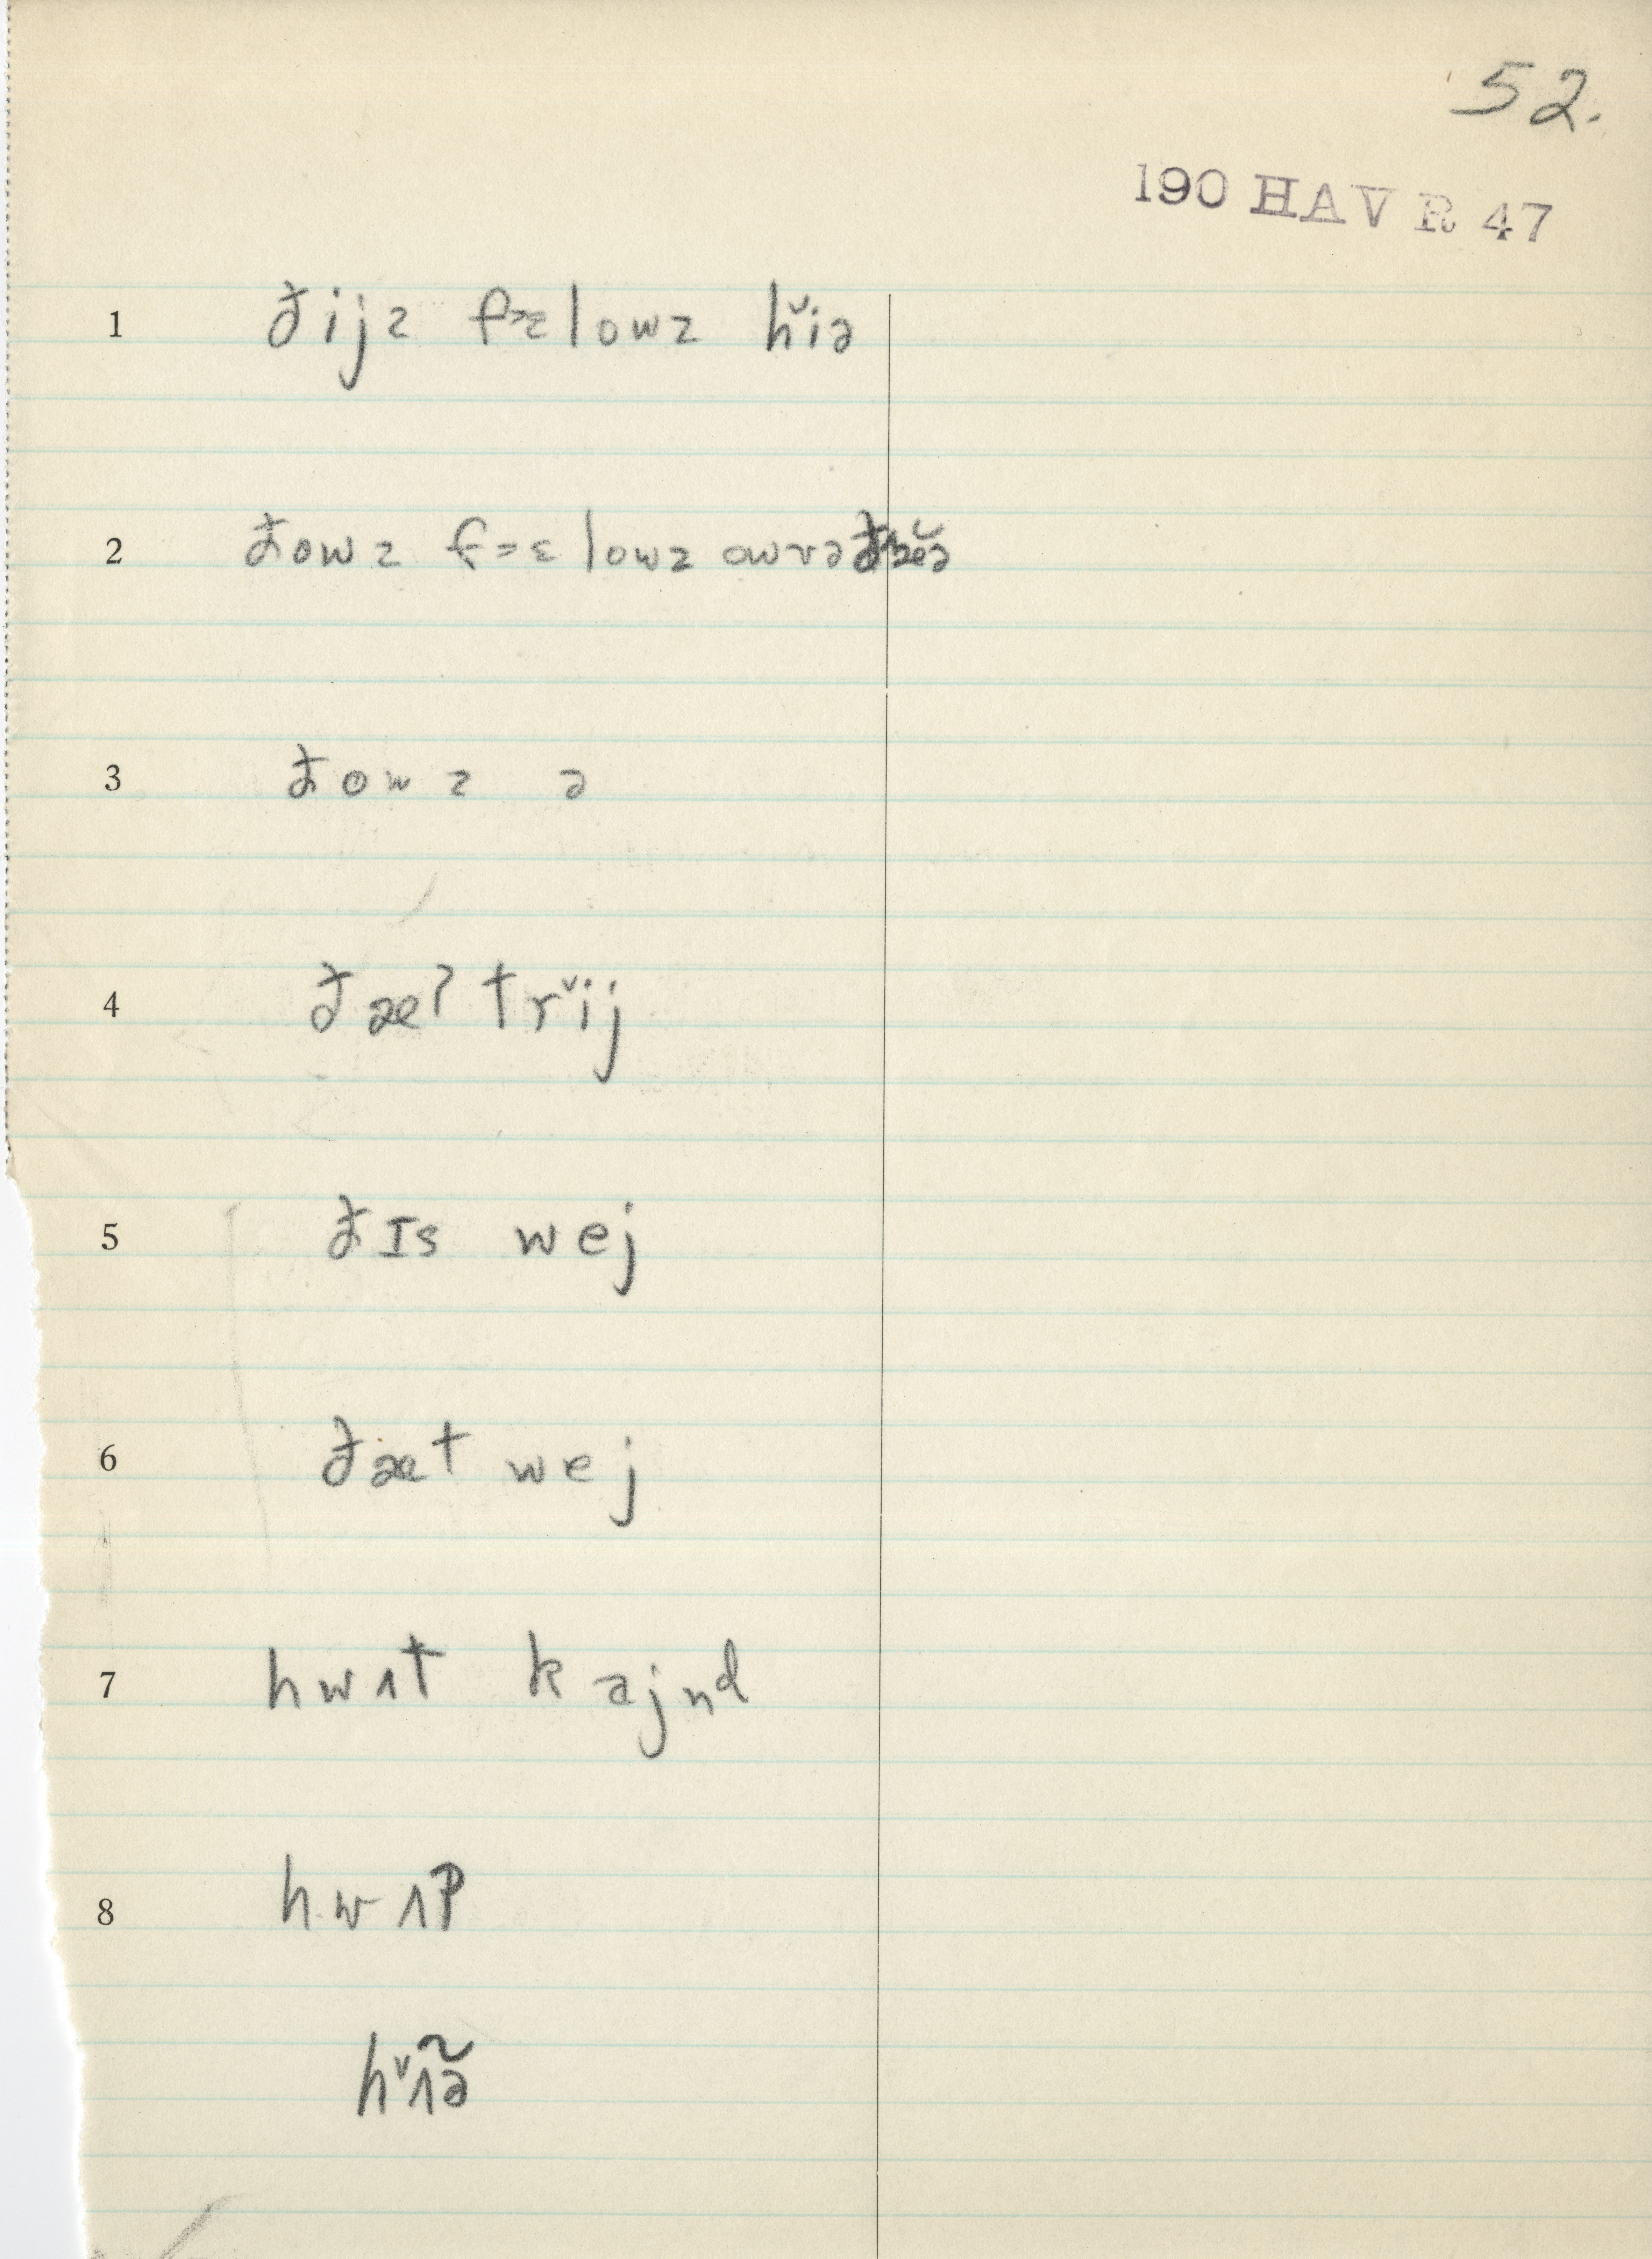 52.
190 HAVR 47
1 đijz fælowz hĭə
2 đowz fæɛlowz owvəđæĕə
3 đowz ə
4 đæʔ trĭj
5 đɪs wej
6 đæt wej
7 hwʌt kajnd
8 hwʌʔ